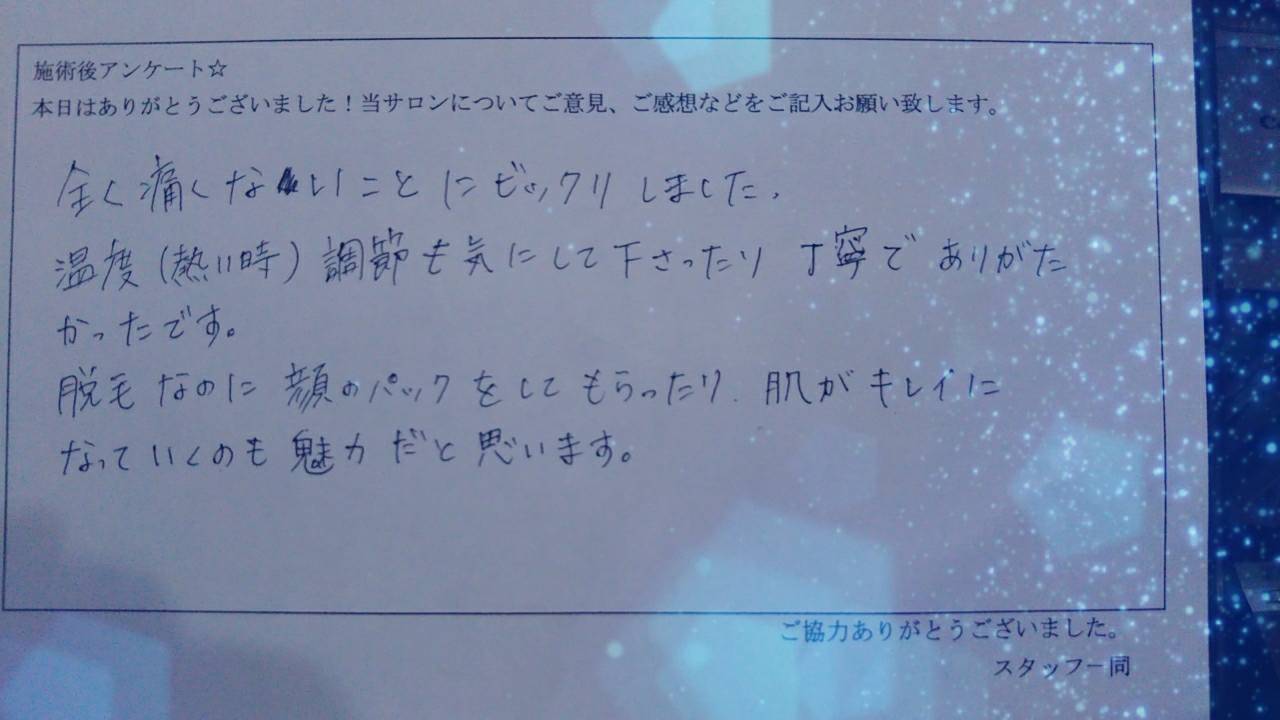 施術後アンケート☆
本日はありがとうございました！当サロンについてご意見、ご感想などをご記入お願い致します。
全く痛くないことにビックリしました。
温度(熱い時)調節も気にして下さったり丁寧でありがた
かったです。
脱毛なのに顔のパックをしてもらったり、肌がキレイに
なっていくのも魅力だと思います。
ご協力ありがとうございました。
スタッフ一同